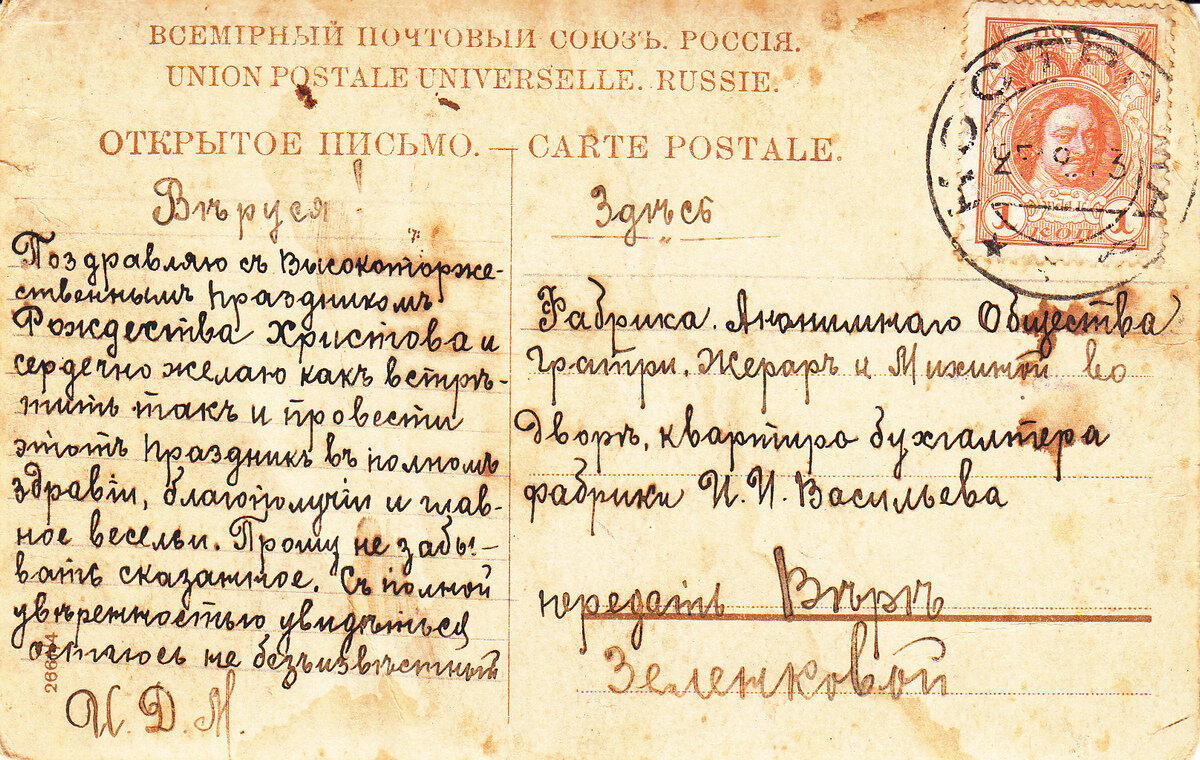 ВСЕМІРНЫЙ ПОЧТОВЫЙ СОЮЗЪ. РОССІЯ.
UNION POSTALE UNIVERSELLE. RUSSIE.
ОТКРЫТОЕ ПИСЬМО. — CARTE POSTALE.
Вѣруся!
Поздравляю съ Высокоторже-
ственнымъ Праздникомъ
Рождества Христова и
сердечно желаю какъ встрѣ-
тить такъ и провести
этотъ Праздникъ въ полномъ
здравіи, благополучіи и глав-
ное весельи. Прошу не забы-
вать сказанное. Съ полной
увѣренностью увидѣться
остаюсь не безъизвѣстный
И. Д. М.
26604
Здѣсь
Фабрика. Анонимнаго Общества
Гратри. Жерардъ и Михиной во
Дворѣ, квартира бухгалтера
фабрики И. И. Васильева
передать Вѣрѣ
Зеленковой
1 КОП 1
КОСТРОМА